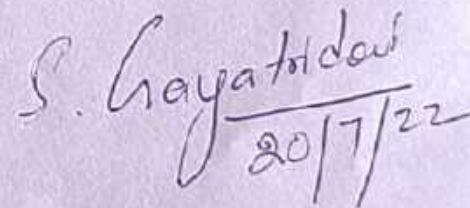 S. Gayatridevi
20/7/22